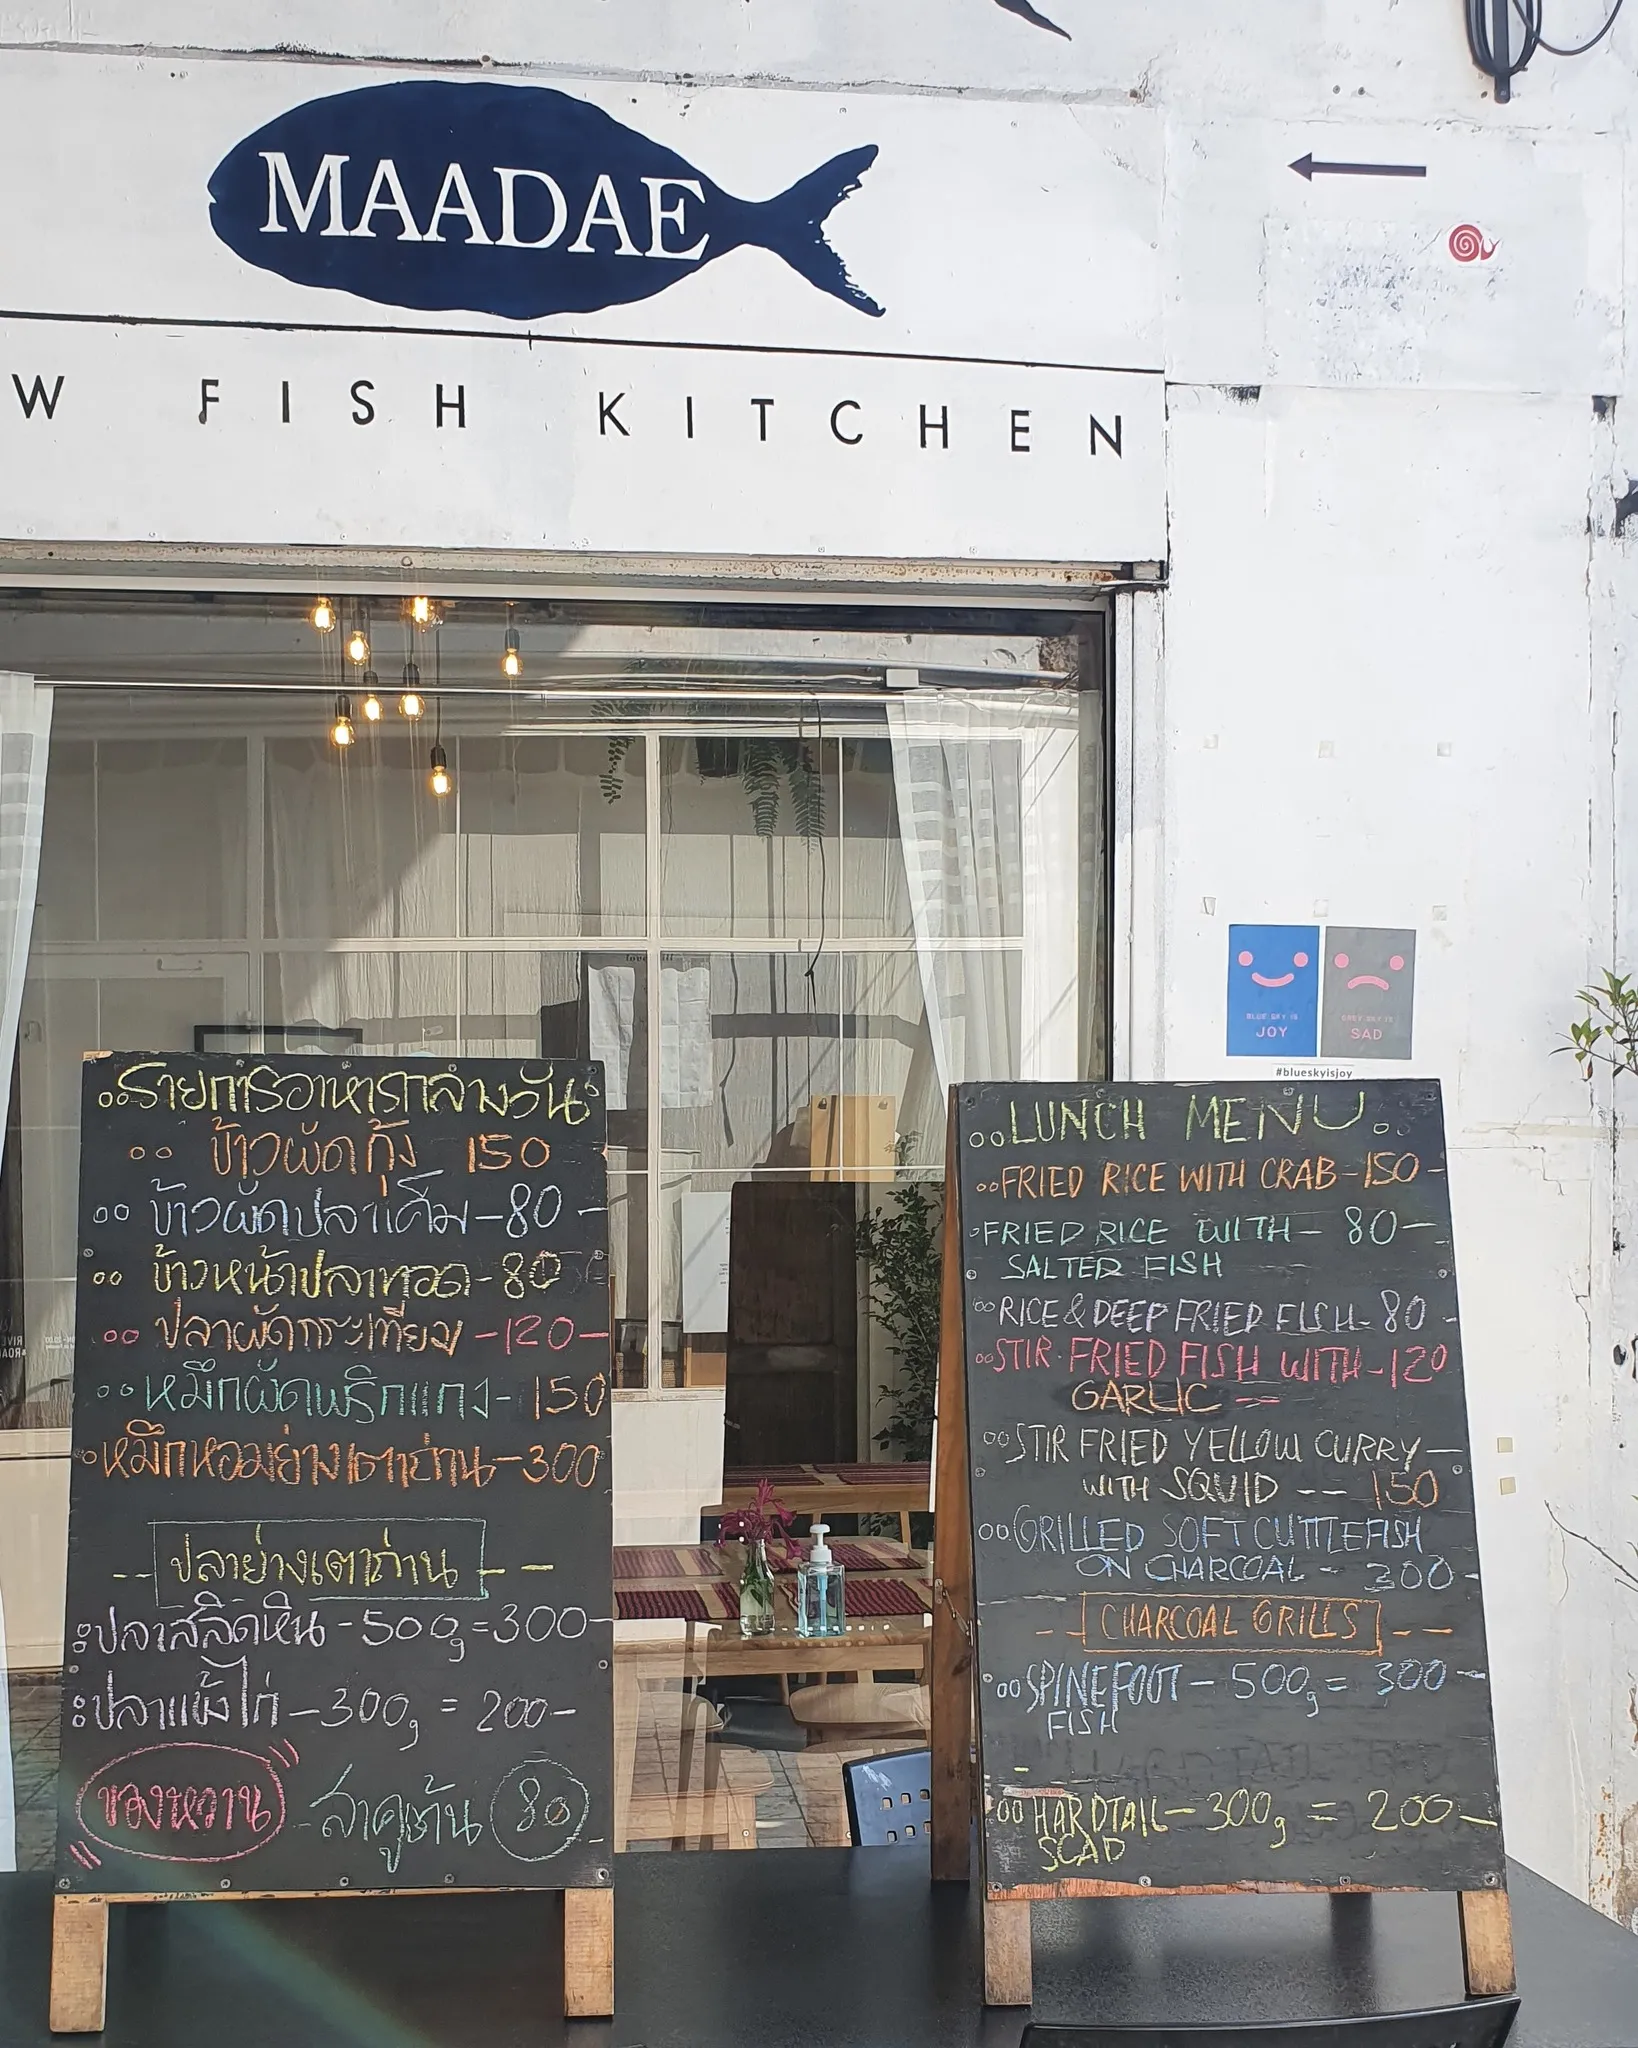 MAADAE
W FISH KITCHEN
BLUE SKY IS
JOY
GREY SKY IS
SAD
#blueskyisjoy
รายการอาหารกลางวัน
ข้าวผัดกุ้ง 150
ข้าวผัดปลาเค็ม - 80 -
ข้าวหน้าปลาทอด - 80
ปลาผัดกระเทียม - 120 -
หมึกผัดพริกแกง - 150
หมึกหอมย่างเตาถ่าน - 300
-- ปลาย่างเตาถ่าน --
ปลาสลิดหิน - 500g = 300 -
ปลาแข้งไก่ - 300g = 200 -
ของหวาน - สาคูต้น 80 -
LUNCH MENU
FRIED RICE WITH CRAB - 150 -
FRIED RICE WITH - 80 -
SALTED FISH
RICE & DEEP FRIED FISH - 80 -
STIR FRIED FISH WITH - 120
GARLIC =
STIR FRIED YELLOW CURRY -
WITH SQUID -- 150
GRILLED SOFT CUTTLEFISH
ON CHARCOAL - 300
-- CHARCOAL GRILLS --
SPINEFOOT - 500g = 300 -
FISH
HARDTAIL - 300g = 200 -
SCAD